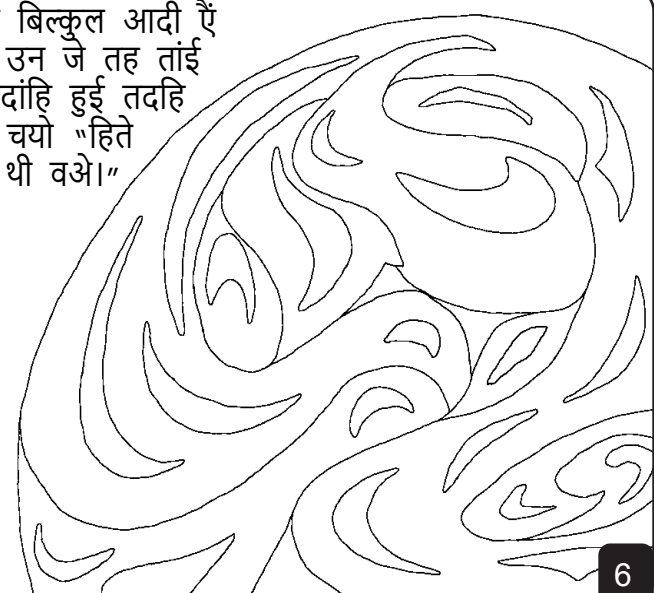 बिल्कुल आदी ऐं
उन जे तह तांई
दांहि हुई तदहि
चयो “हिते
थी वञे।”
6